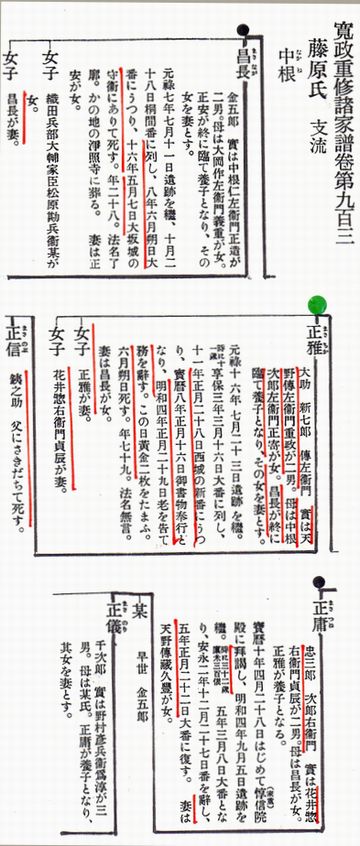 寛政重修諸家譜卷第九百三
藤原氏 支流
中根
昌長
まさ なが
金五郎 實は中根仁左衞門正造が
二男。母は大岡作左衞門義重が女。
正安が終に臨て養子となり、その
女を妻とす。
元祿七年七月十一日遺跡を繼、十月二
十八日桐間番に列し、八年六月朔日大
番にうつり、十六年五月七日大坂城の
守衞にありて死す。年二十八。法名了
廓。かの地の淨照寺に葬る。 妻は正
安が女。
女子
織田兵部大輔家臣松原勘兵衞某が
女。
女子
昌長が妻。
正雅
まさ
大助 新七郎 傳左衞門 實は天
野傳左衞門重政が二男。母は中根
次郎左衞門正寄が女。昌長が終に
臨て養子となり、その女を妻とす。
元祿十六年七月二十三日遺跡を繼。
時に十一歳
享保三年三月十六日大番に列し、
十一年正月二十八日西城の新番にうつ
り、寶暦八年正月十六日御書物奉行と
なり、明和四年正月二十九日老を告て
務を辭す。この日黄金二枚をたまふ。
六月朔日死す。年七十九。法名無言。
妻は昌長が女。
女子
正雅が妻。
女子
花井惣右衞門貞辰が妻。
正信
まさ のぶ
銕之助 父にさきだちて死す。
正庸
まさ つね
忠三郎 次郎右衞門 實は花井惣
右衞門貞辰が二男。母は昌長が女。
正雅が養子となる。
寶暦十年四月二十八日はじめて惇信院
(家重)
殿に拜謁し、明和四年九月五日遺跡を
繼。
時に三十二歳
廩米三百俵
五年三月八日大番とな
り、安永二年十二月二十七日番を辭し、
五年正月二十二日大番に復す。 妻は
天野傳藏久豐が女。
某
早世 金五郎
正儀
まさ
千次郎 實は野村彥兵衞爲淳が三
男。母は某氏。正庸が養子となり、
其女を妻とす。